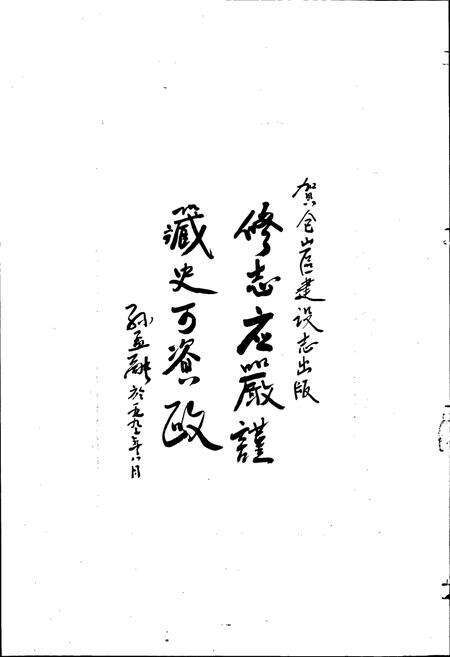 贺仓山区建设志出版
修志应嚴謹
藏史可資政
孙孟融於一九九年八月